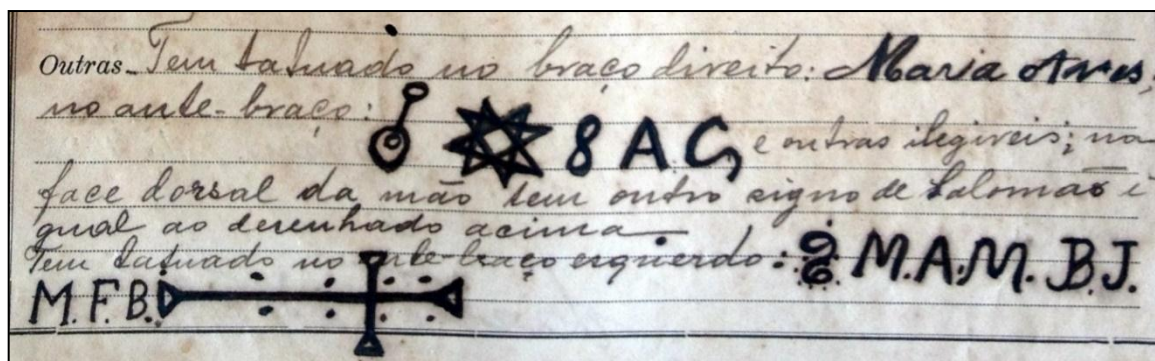 Outras - Tem tatuado no braço direito: Maria Alves;
no ante-braço: 8 A. C, e outras ilegiveis; na
face dorsal da mão tem outro signo de Salomão i
gual ao desenhado acima
Tem tatuado no ante-braço esquerdo: M.A.M. B.J.
M.F.B.